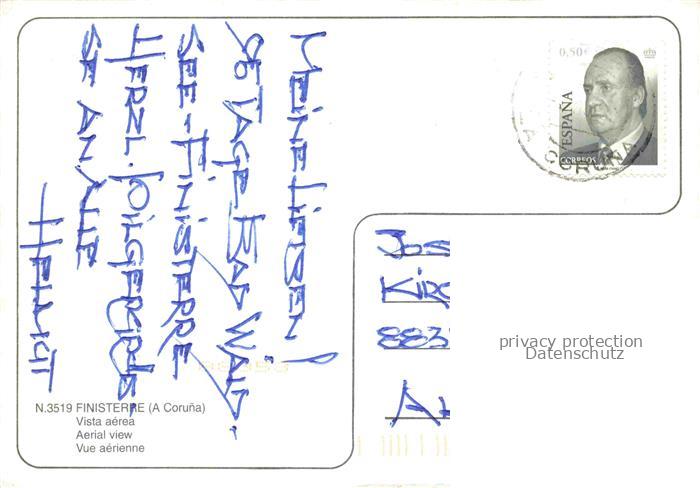 MEINE LIEBEN!
98 TAGE BAD WALD-
SEE-FINISTERRE
HERZL. PILGERGRÜS-
SE AN ALLE
HELMUT
0,50€
ESPAÑA
CORREOS
Jos
Kir
883
A
privacy protection
Datenschutz
N.3519 FINISTERRE (A Coruña)
Vista aérea
Aerial view
Vue aérienne